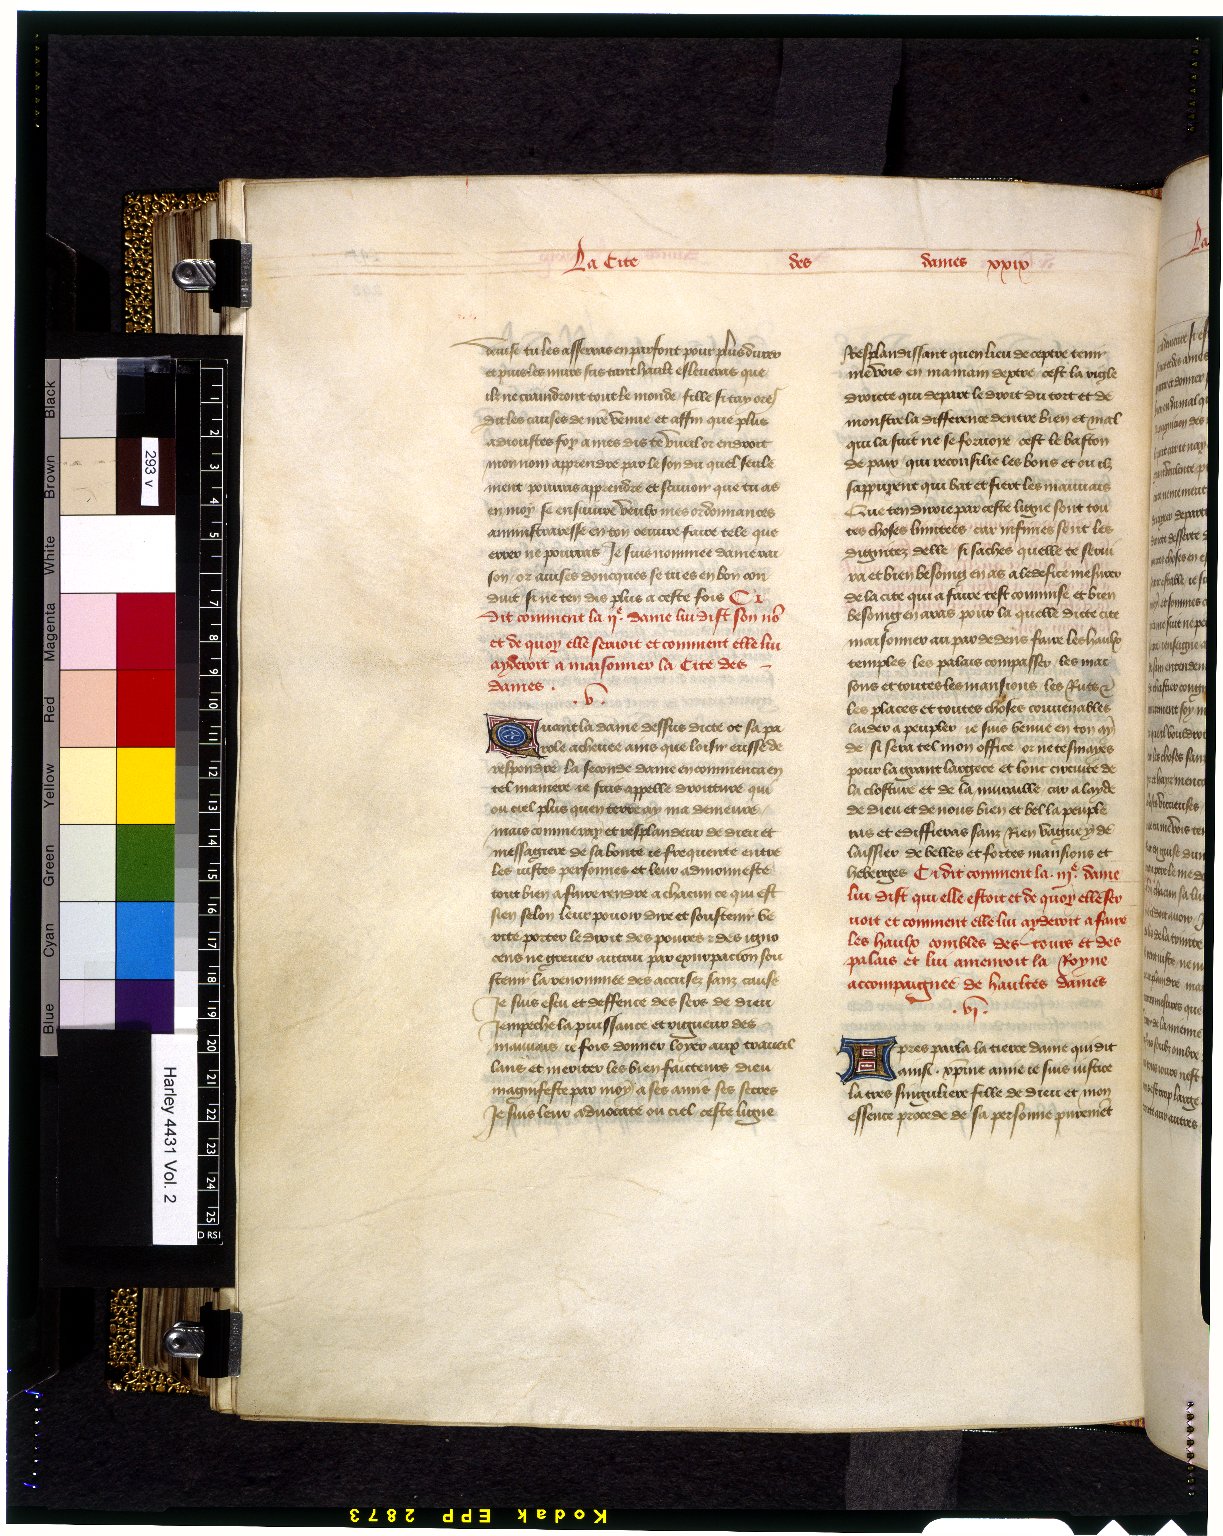 La Cite des dames xxix
deuise tu les asserras en parfont pour plus durer
et puis les murs sus tant hault esleueras que
ilz ne craindront tout le monde fille si tay ore
dit les causes de nre venue et affin que plus
adioustes foy a mes dis te vueil or endroit
mon nom apprendre par le son du quel seule
ment pourras apprendre et sauoir que tu as
en moy se ensuiure veulx mes ordonnances
aministraresse en ton oeuure faire tele que
errer ne pourras Je suis nommee dame rai
son or auises doncques se tu es en bon con
duit si ne ten dis plus a ceste fois Ci
dit comment la ije dame lui dist son no
et de quoy elle seruoit et comment elle lui
aideroit a maisonner la Cite des
dames .
. v .
Quant la dame dessus dicte ot sa pa
role acheuee ains que loisir eusse de
respondre la seconde dame encommenca en
tel maniere ie suis appelle droitture qui
ou ciel plus quen terre ay ma demeure
mais comme ray et resplandeur de dieu et
messagiere de sa bonte ie frequente entre
les iustes personnes et leur admonneste
tout bien a faire rendre a chacun ce qui est
sien selon leur pouoir dire et soustenir ve
rite porter le droit des poures et des igno
cens ne greuer autrui par exurpacion sou
stenir la renommee des accusez sanz cause
Je suis escu et deffence des sers de dieu
Jempeche la puissance et vigueur des
mauuais ie fois donner loyer aux traueil
lans et meriter les bien faicteurs dieu
magnifeste par moy a ses amis ses secres
Je suis leur aduocate ou ciel ceste ligne
Resplandissant quen lieu de ceptre tenir
me vois en ma main dextre cest la rigle
droite qui depart le droit du tort et de
monstre la difference dentre bien et mal
qui la suit ne se foruoye cest le baston
de paix qui reconsilie les bons et ou ilz
sappuyent qui bat et fiert les mauuais
Que ten diroie par ceste ligne sont tou
tes choses limitees car infinies sont les
dignitez delle si saches quelle te serui
ra et bien besoing en as a ledefice mesurer
de la cite qui a faire test commise et bien
besoing en aras pour la quelle dicte cite
maisonner au par dedens faire les haulx
temples les palais compasser les mai
sons et toutes les mansions les Rues et
les places et toutes choses couuenables
laidier a peupler ie suis venue en ton ay
de si sera tel mon office or ne tesmayes
pour la grant largece et lonc circuite de
la closture et de la muraille car a layde
de dieu et de nous bien et bel la peuple
ras et ediffieras sanz Rien vague y de
laissier de belles et fortes mansions et
heberges Ci dit comment la . iije dame
lui dist qui elle estoit et de quoy elle ser
uoit et comment elle lui ayderoit a faire
les haulx combles des tours et des
palais et lui amenroit la Royne
accompaignee de haultes dames
. vj .
Apres parla la tierce dame qui dit
ainsi . xpine amie ie suis iustice
la tres singuliere fille de dieu et mon
essence procede de sa personne purement
Black
Brown
White
Magenta
Red
Yellow
Green
Cyan
Blue
293 v
1
2
3
4
5
7
8
9
10
11
12
13
14
15
16
17
18
19
20
21
22
23
24
25
D RSI
Harley 4431 Vol. 2
Kodak EPP 2873